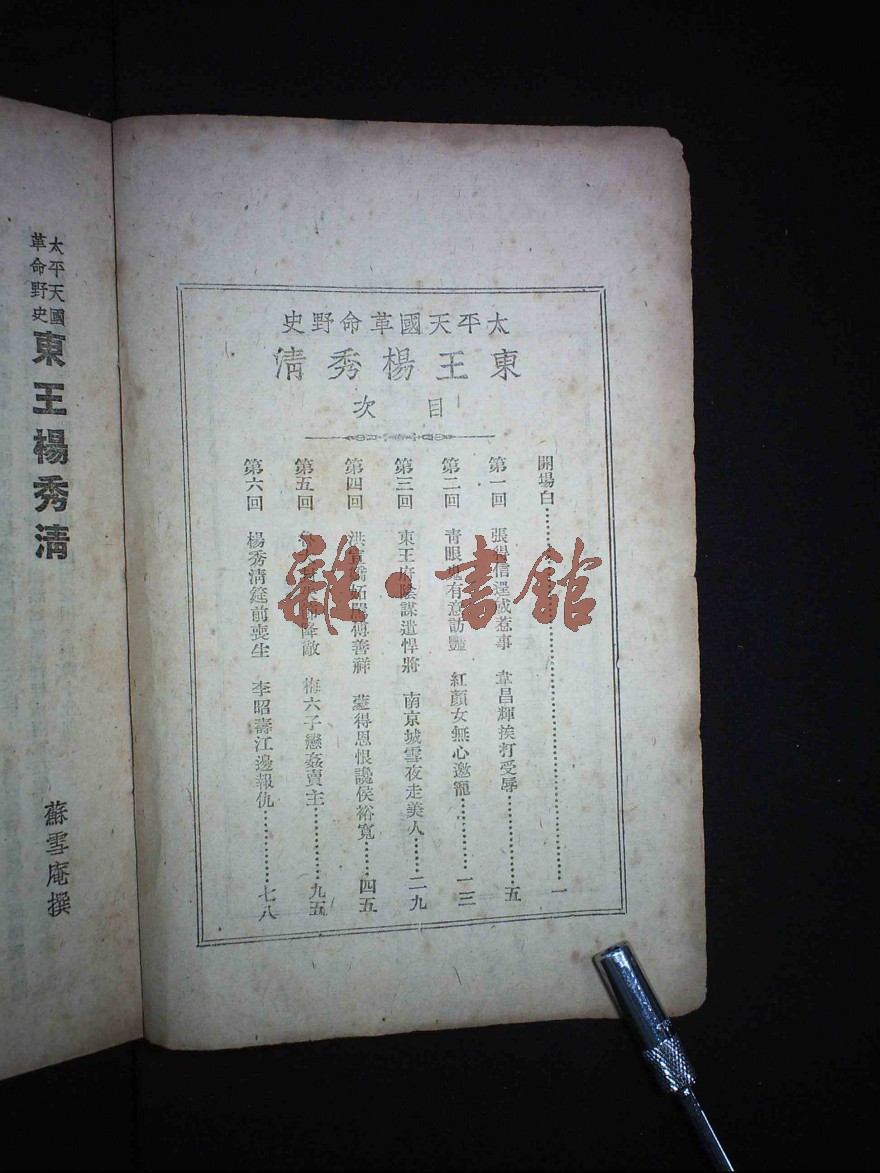 太平天國革命野史
東王楊秀清
目次
開場白……一
第一回 張得信逞惹事 韋昌輝挨打受辱……五
第二回 青眼有意訪豔 紅顏女無心邀寵……一三
第三回 東王府陰謀遣悍將 南京城雪夜走美人……二九
第四回 洪宣嬌妬鬧傅善祥 得恩恨讒侯裕寬……四五
第五回 降敵 梅六子戀姦賣主……九五
第六回 楊秀清筵前喪生 李昭壽江邊報仇……七八
太平天國
革命野史
東王楊秀清
蘇雪庵撰
雜·書館